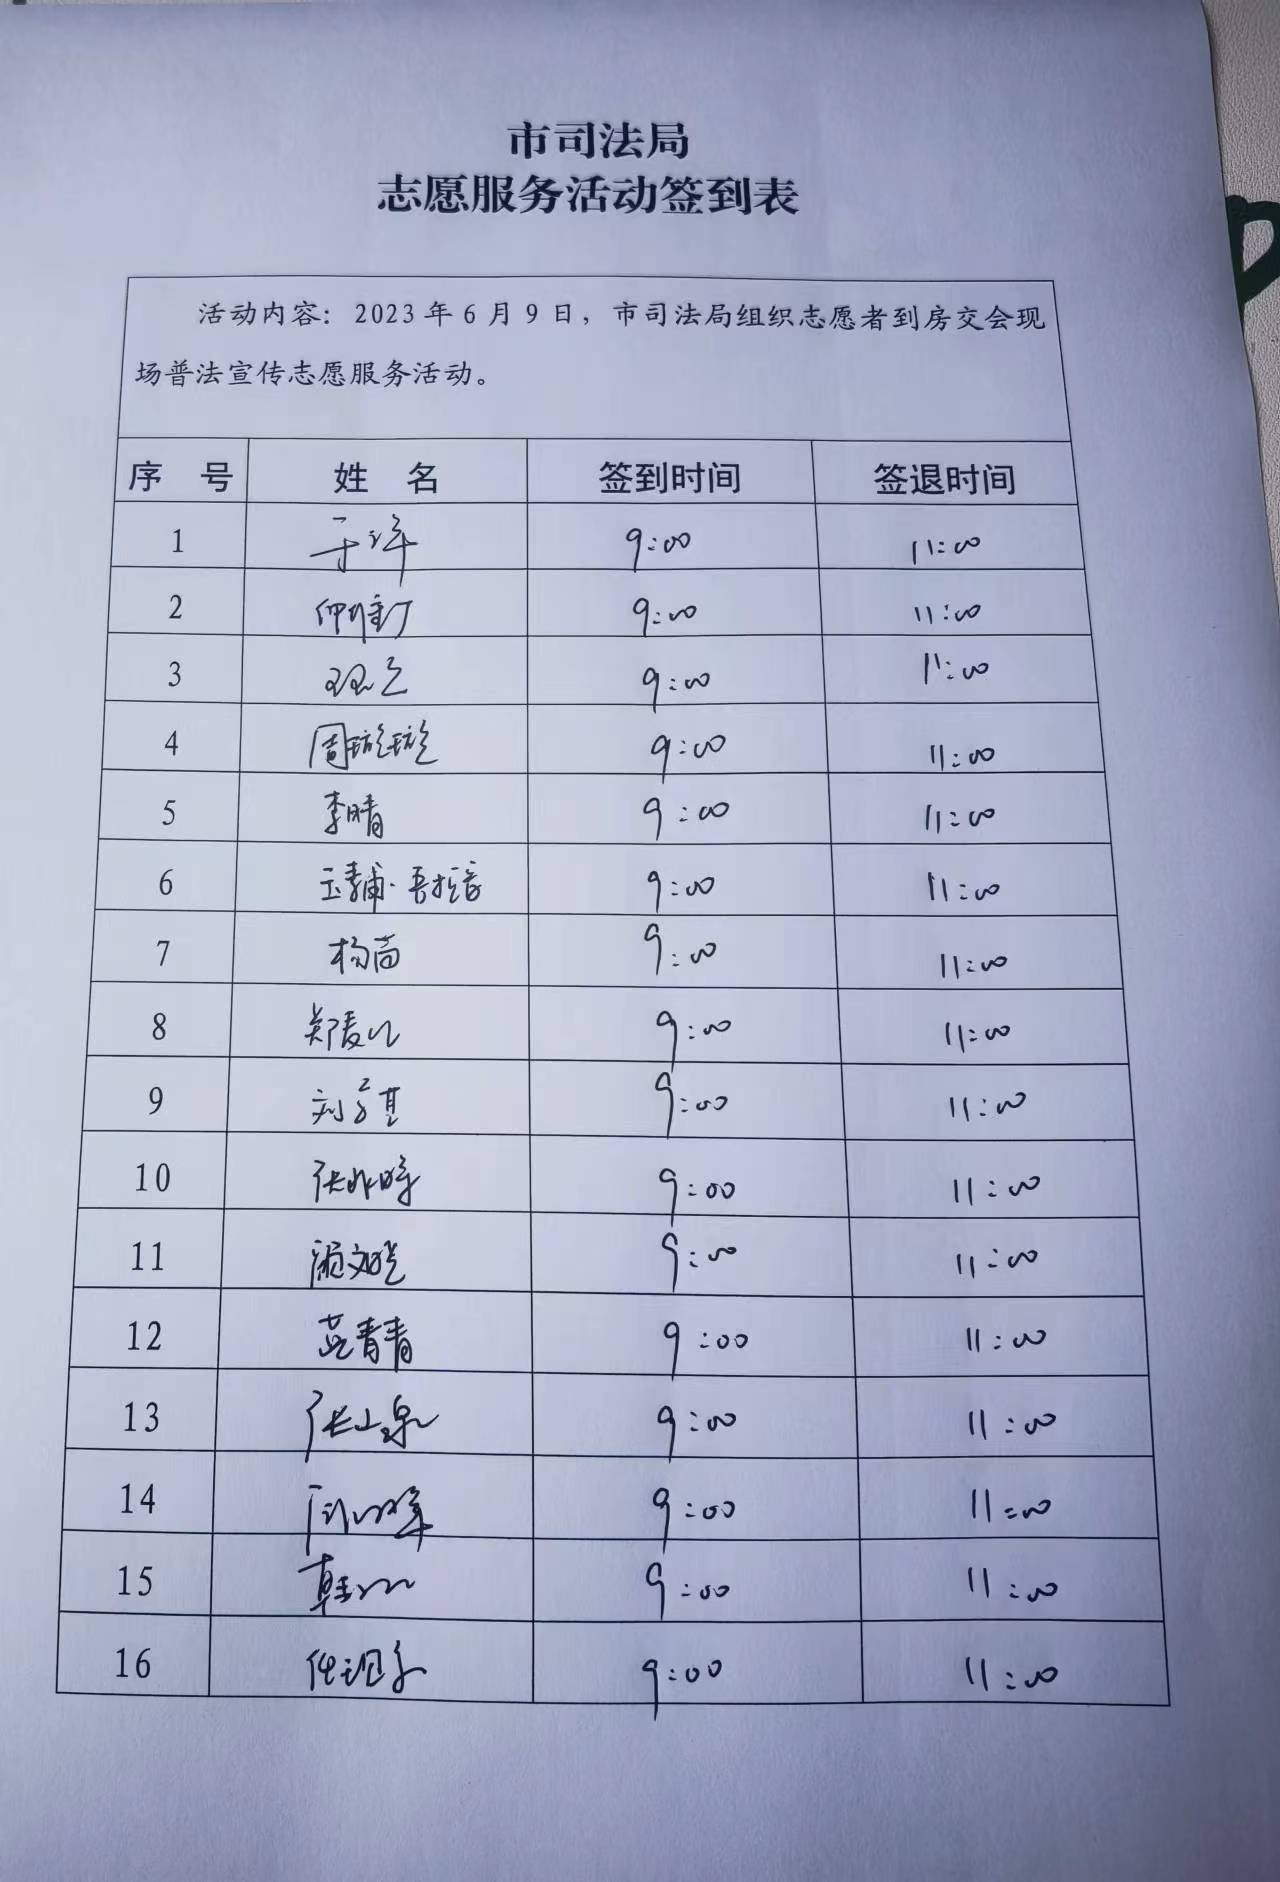 市司法局
志愿服务活动签到表
活动内容：2023年6月9日，市司法局组织志愿者到房交会现
场普法宣传志愿服务活动。
序 号 姓 名 签到时间 签退时间
1 9:00 11:00
2 9:00 11:00
3 9:00 11:00
4 周璇璇 9:00 11:00
5 李晴 9:00 11:00
6 9:00 11:00
7 杨苗 9:00 11:00
8 9:00 11:00
9 9:00 11:00
10 9:00 11:00
11 9:00 11:00
12 9:00 11:00
13 9:00 11:00
14 9:00 11:00
15 9:00 11:00
16 9:00 11:00